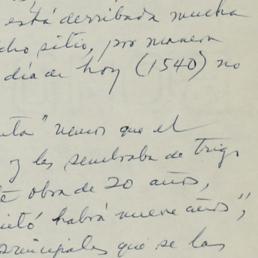 está derribada mucha
cho sitio, por manera
día de hoy (1540) no
nta" vemos que el
y les sembraba de trigo
te obra de 20 años,
uitó habrá nueve años",
principales que se las